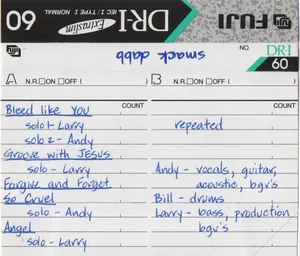 60
Extraslim
DR-I
IEC I / TYPE I NORMAL
FUJI
smack dabb
NO.
DR-I
60
A N.R.□ON □OFF ( )
B N.R.□ON □OFF ( )
COUNT
COUNT
Bleed like You
solo 1 - Larry
solo 2 - Andy
Groove with JESUS
solo - Larry
Forgive and Forget
So Cruel
solo - Andy
Angel
solo - Larry
repeated
Andy - vocals, guitar,
acoustic, bgv's
Bill - drums
Larry - bass, production
bgv's